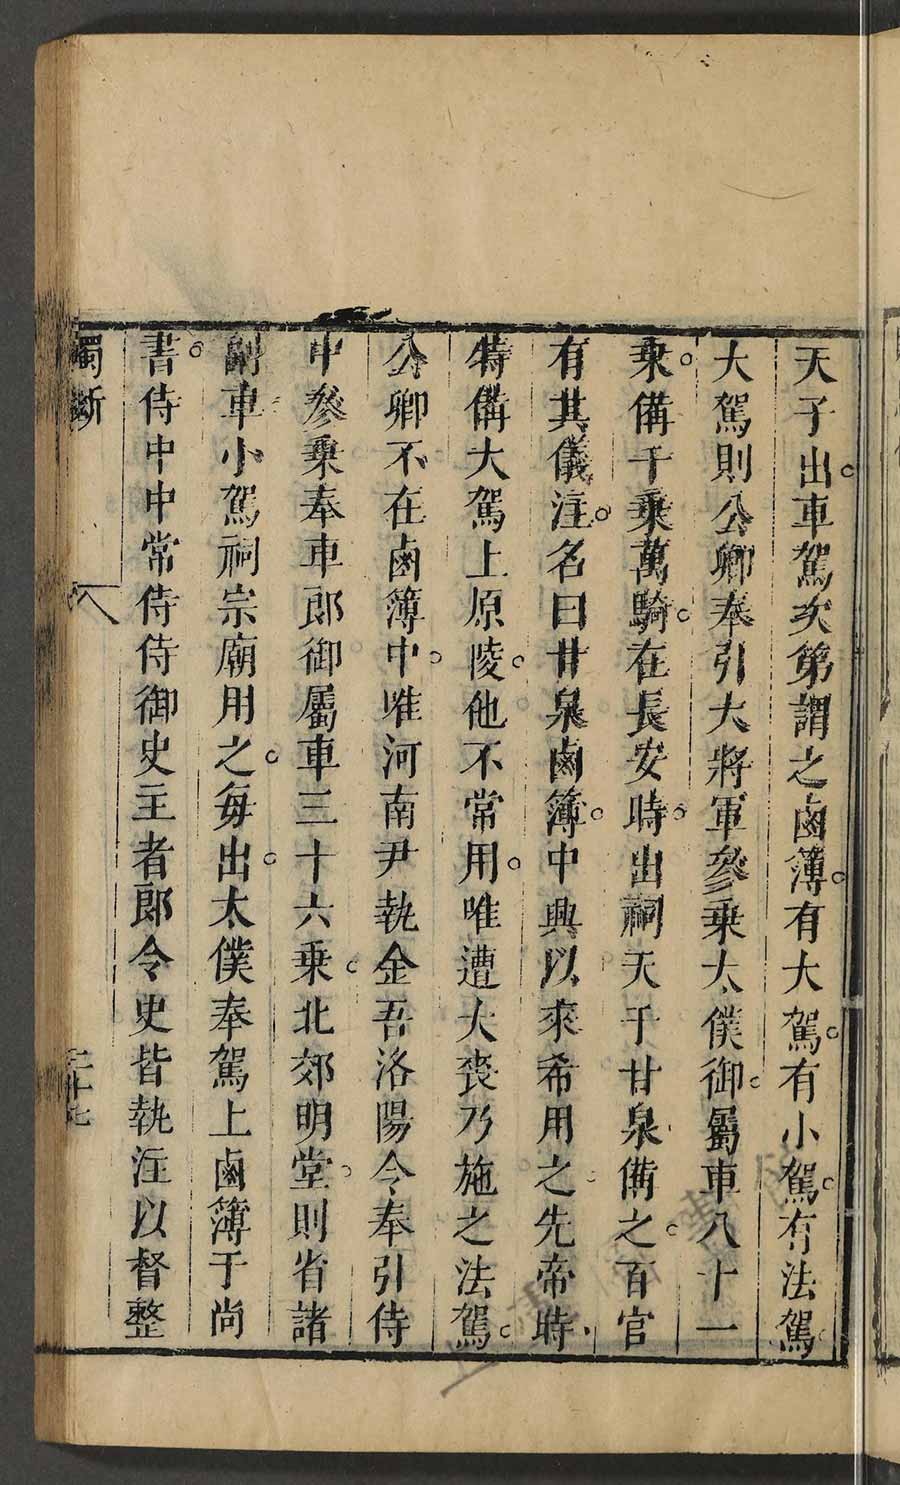 天子出車駕次第謂之鹵簿有大駕有小駕有法駕
大駕則公卿奉引大將軍參乘太僕御屬車八十一
乘備千乘萬騎在長安時出祠天于甘泉備之百官
有其儀注名曰甘泉鹵簿中興以來希用之先帝時
特備大駕上原陵他不常用唯遭大喪乃施之法駕
公卿不在鹵簿中唯河南尹執金吾洛陽令奉引侍
中參乘奉車郎御屬車三十六乘北郊明堂則省諸
副車小駕祠宗廟用之每出太僕奉駕上鹵簿于尚
書侍中中常侍侍御史主者郎令史皆執注以督整
獨斷
二十七